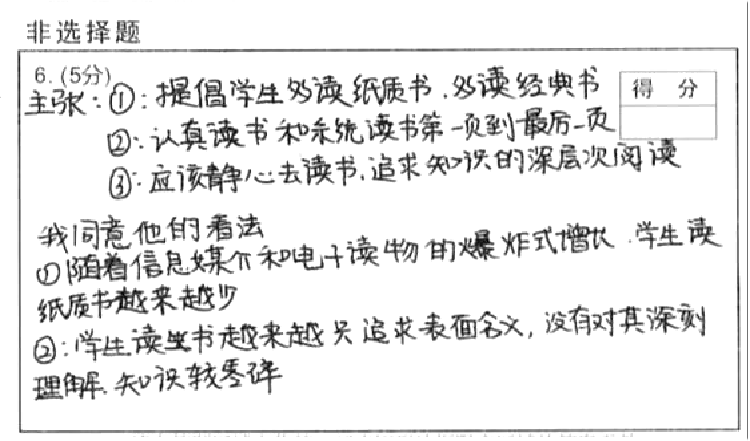 非选择题
6. (5分)
得 分
主张:①:提倡学生多读纸质书.多读经典书
②:认真读书和系统读书第一页到最后一页
③:应该静心去读书.追求知识的深层次阅读
我同意他的看法
①随着信息媒介和电子读物的爆炸式增长.学生读
纸质书越来越少
②:学生读书越来越只追求表面含义,没有对其深刻
理解.知识较零碎